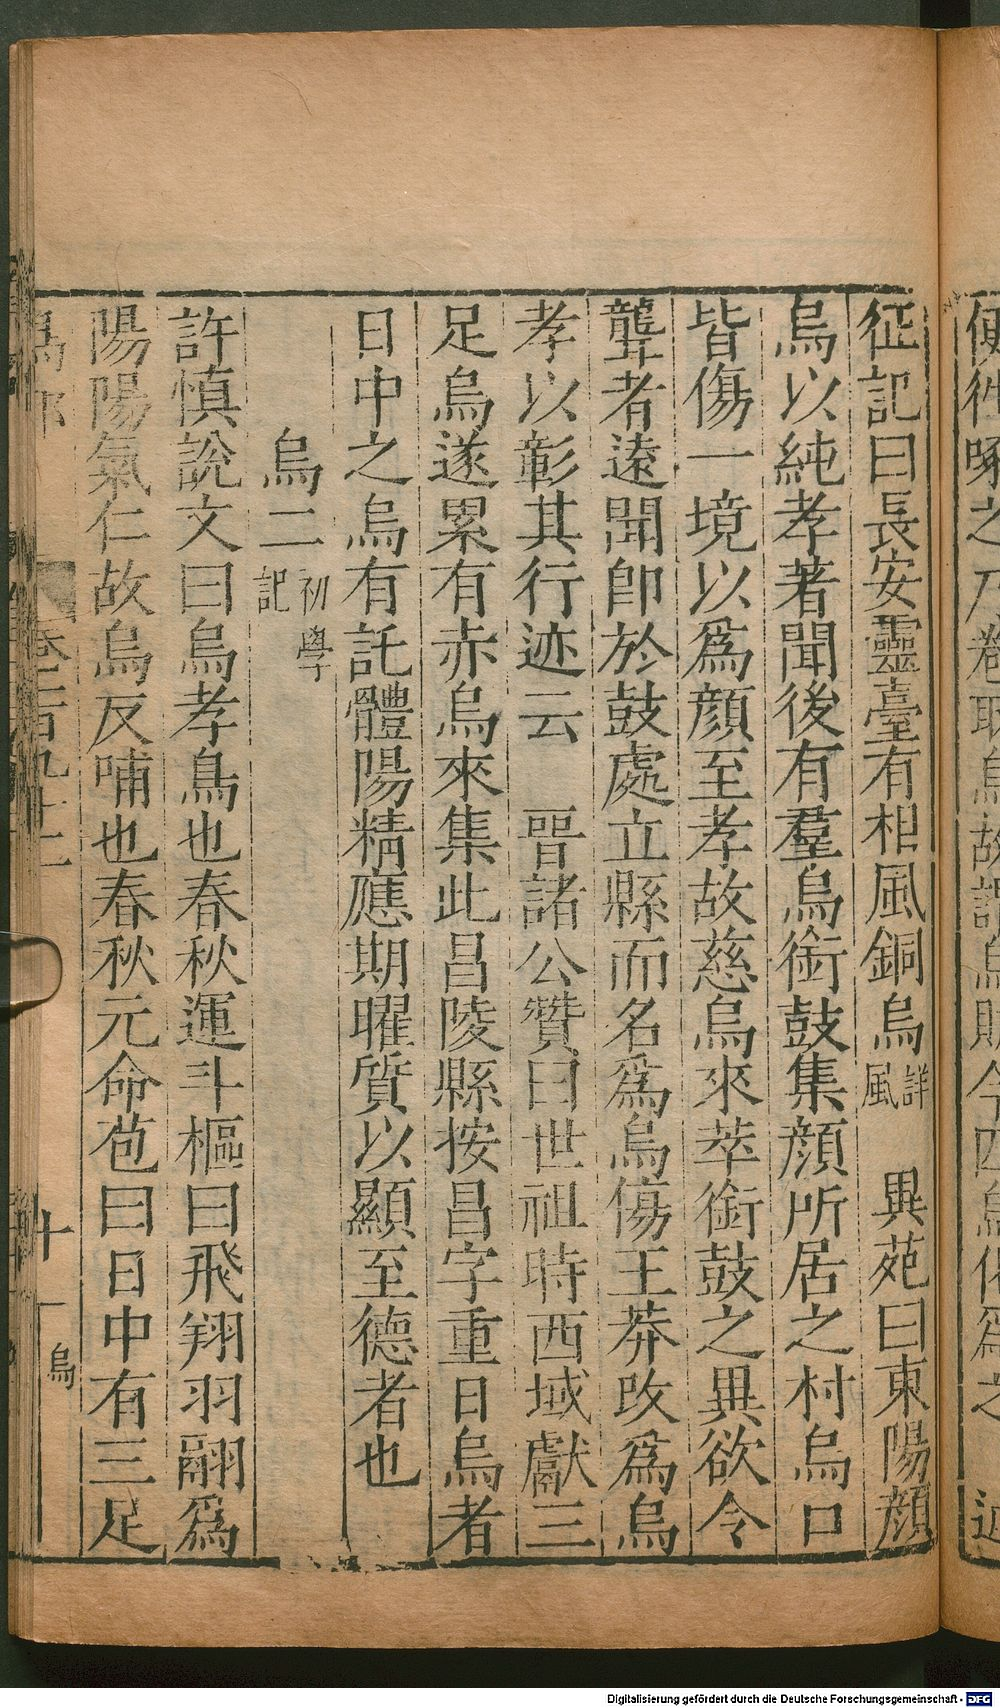 征記曰長安靈臺有相風銅烏詳風　異苑曰東陽顔
烏以純孝著聞後有羣烏銜鼓集顔所居之村烏口
皆傷一境以爲顔至孝故慈烏來萃銜鼓之異欲令
聾者遠聞卽於鼓處立縣而名爲烏傷王莽改爲烏
孝以彰其行迹云　晉諸公贊曰世祖時西域獻三
足烏遂累有赤烏來集此昌陵縣按昌字重日烏者
日中之烏有託體陽精應期曜質以顯至德者也
烏二初學記
許慎說文曰烏孝鳥也春秋運斗樞曰飛翔羽翮爲
陽陽氣仁故烏反哺也春秋元命苞曰日中有三足
十一 烏
Digitalisierung gefördert durch die Deutsche Forschungsgemeinschaft - DFG